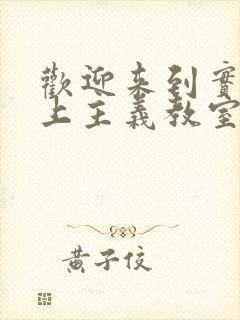 歡迎来到實
上主義教室
黃子佼